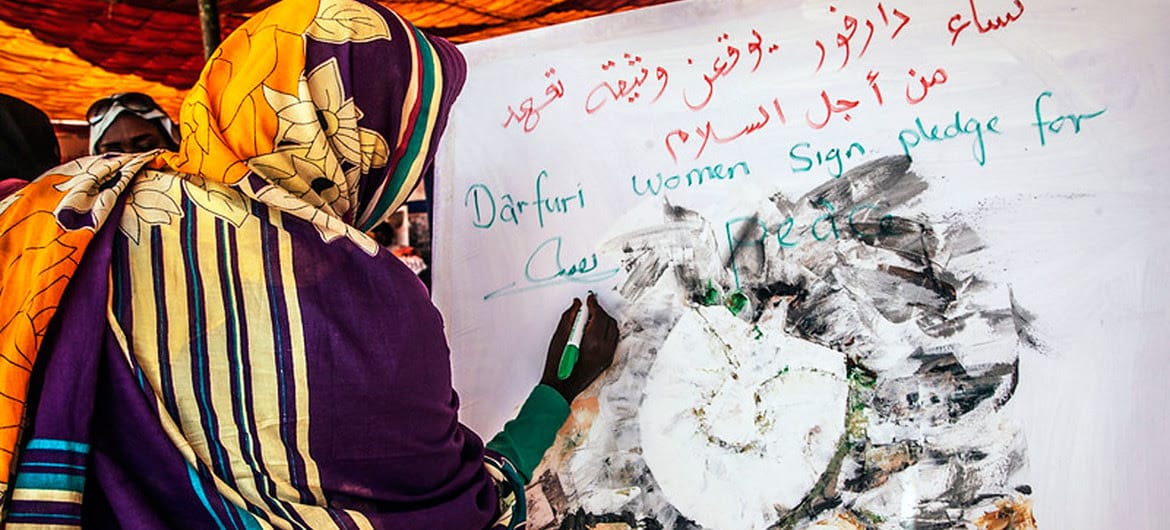 نساء دارفور يوقعن وثيقة تعهد
من أجل السلام
Darfuri women Sign pledge for
peace